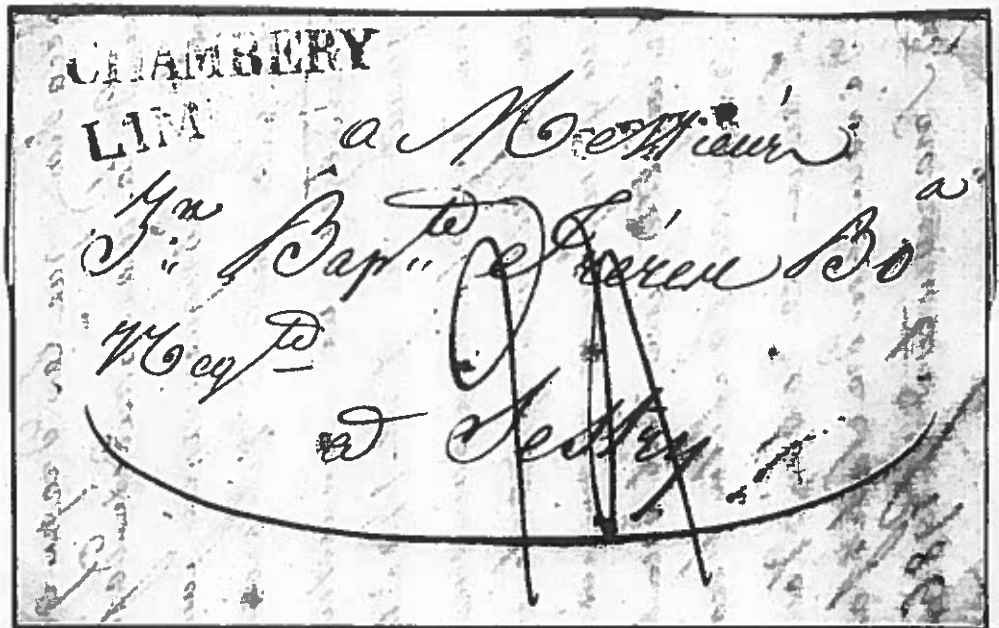 CHAMBERY
LIM
a Messieurs
Jn Bapte & Frèren Bo a
Negte
a Sestry